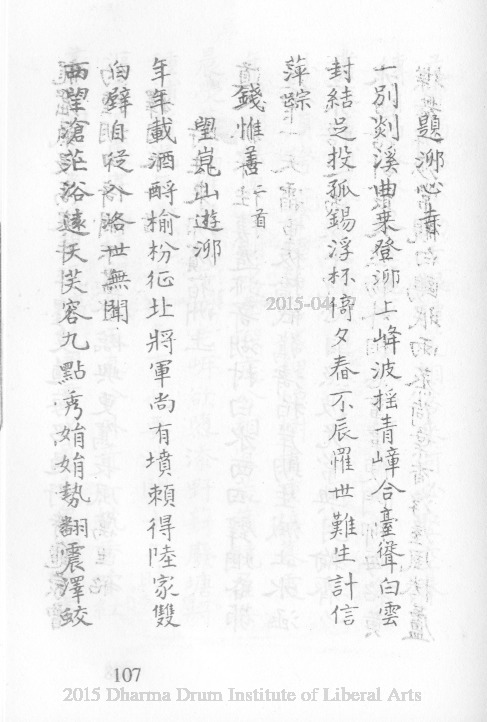 題泖心寺
一別剡溪曲乗登泖上峰波揺青嶂合臺聳白雲
封結足投孤錫浮杯倚夕春不辰罹世難生計信
萍踪
錢惟善二首
望崑山遊泖
年年載酒酹榆枌征北將軍尚有墳頼得陸家雙
白璧自從入洛世無聞
西望滄茫浴遠天芙容九點秀娟娟勢翻震澤蛟
107
2015-04-17
2015 Dharma Drum Institute of Liberal Arts